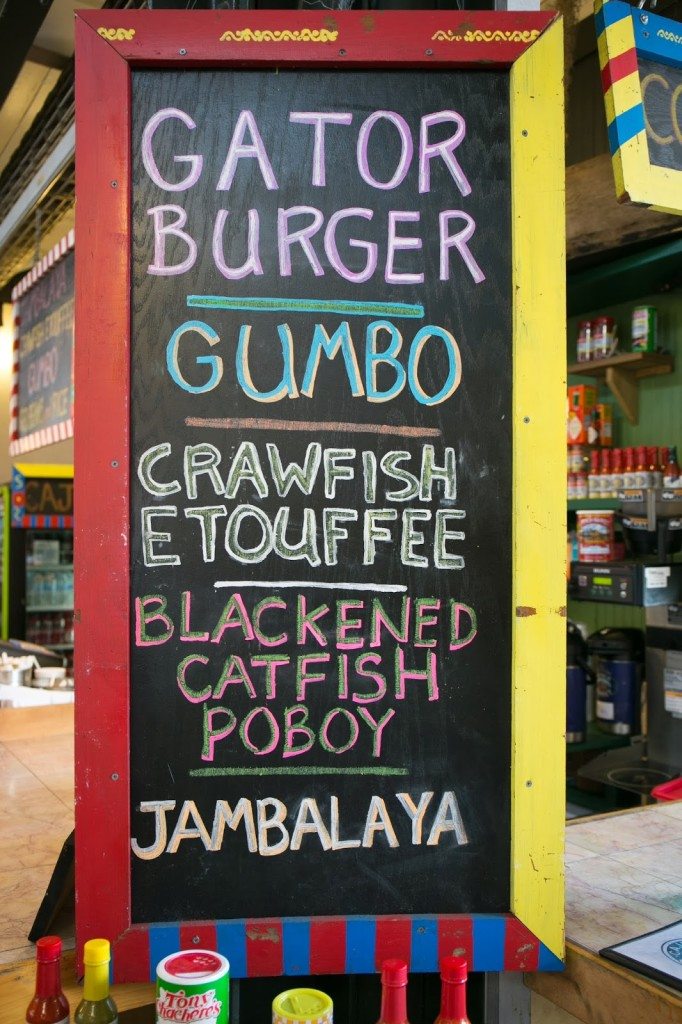 GATOR
BURGER
GUMBO
CRAWFISH
ETOUFFEE
BLACKENED
CATFISH
POBOY
JAMBALAYA
GUMBO
CAJ
CO
Tony
Chachere's